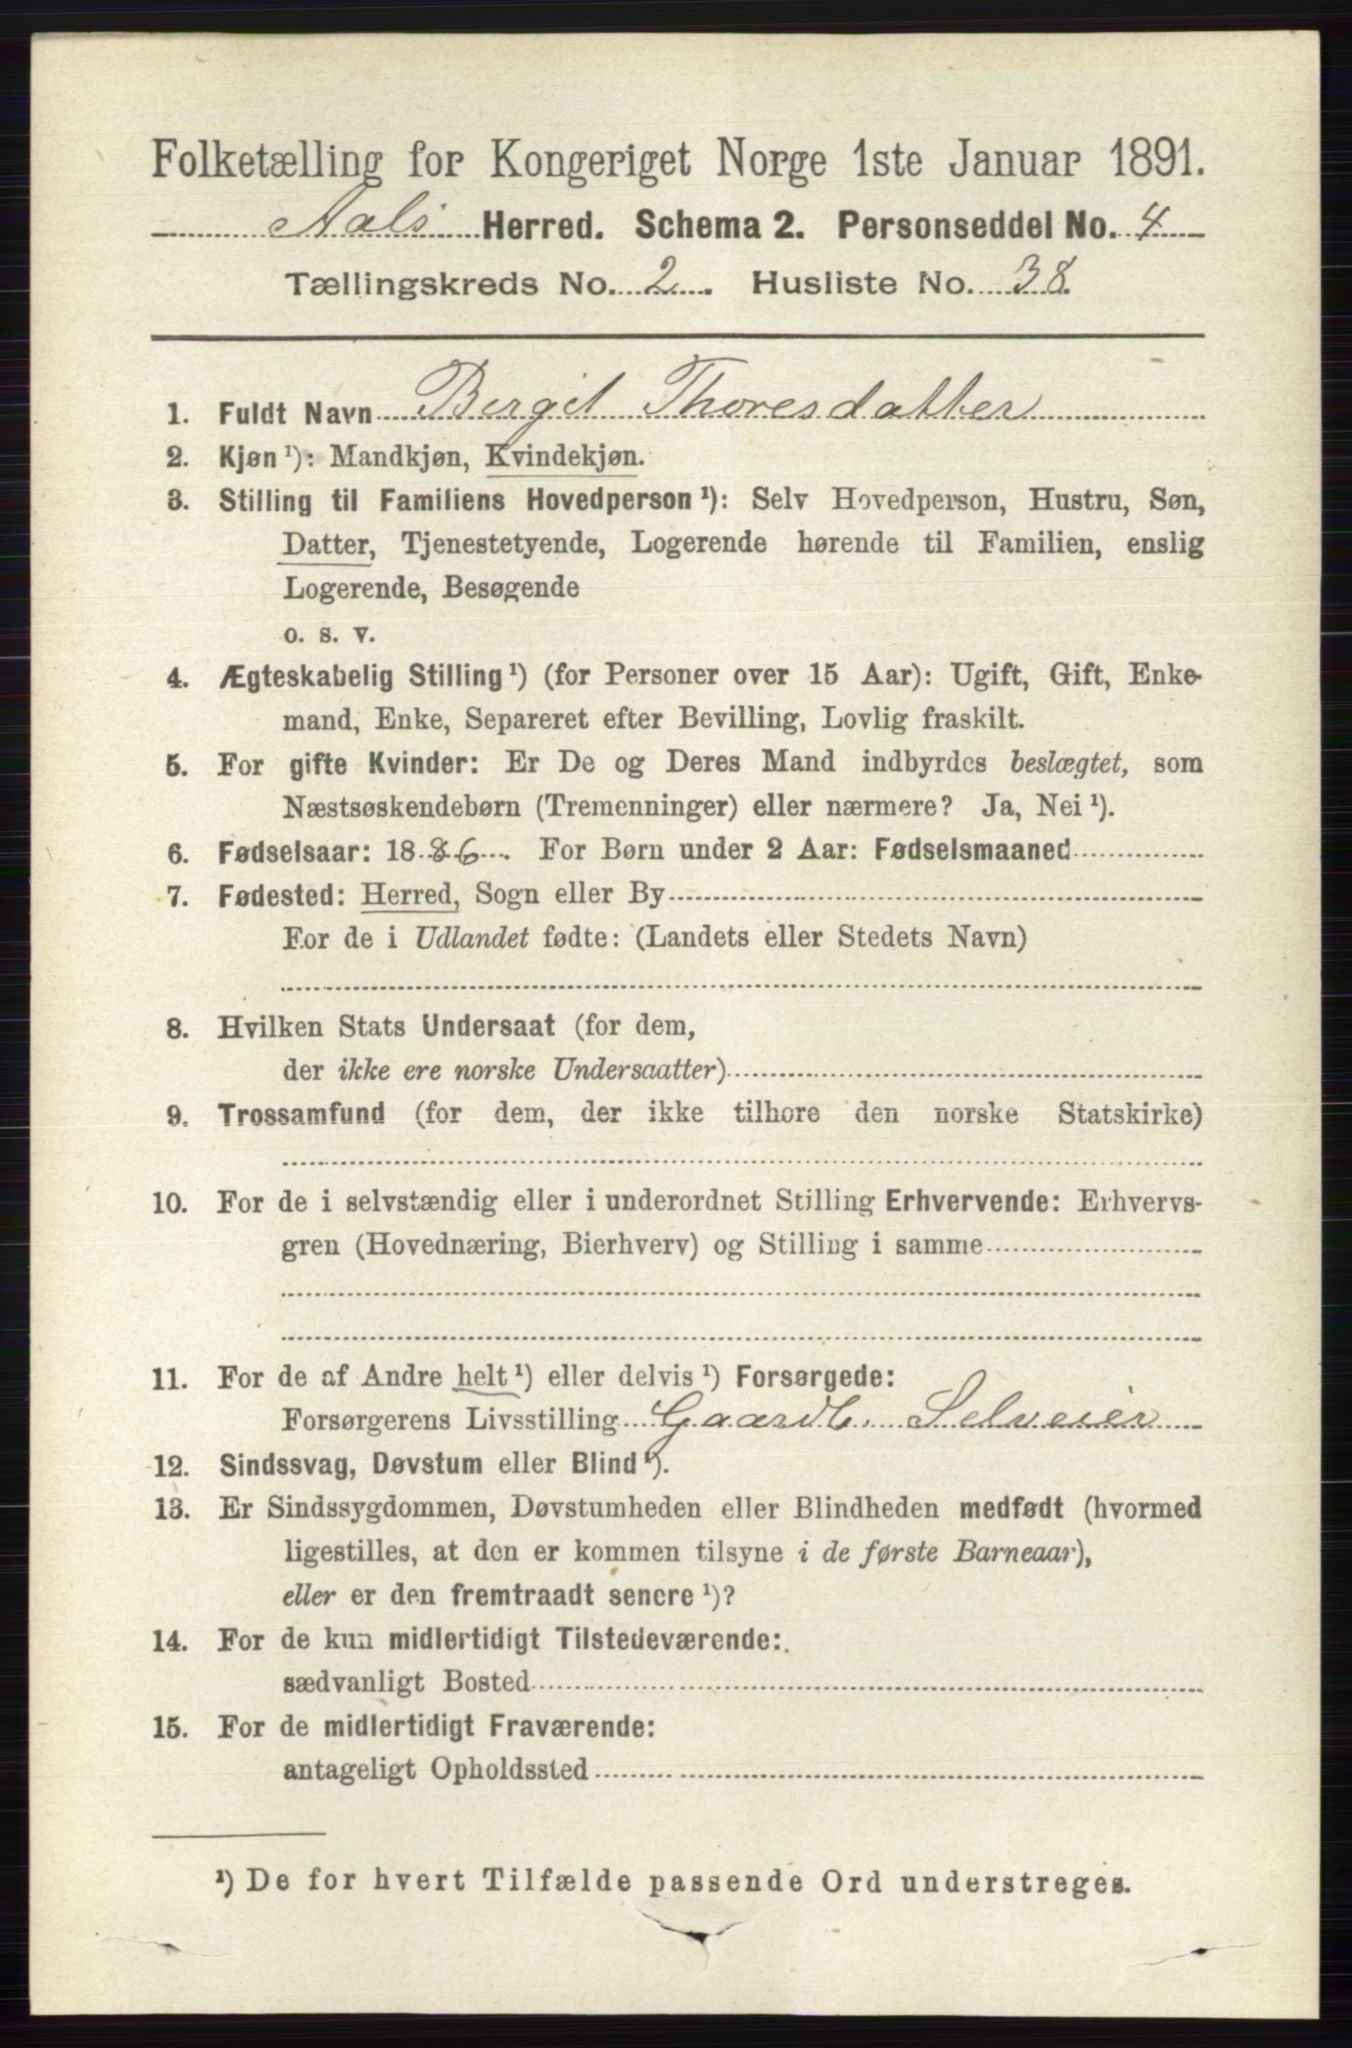 Folketælling for Kongeriget Norge 1ste Januar 1891.
Aals Herred. Schema 2. Personseddel No. 4
Tællingskreds No. 2. Husliste No. 38.
1. Fuldt Navn Bergit Thoresdatter
2. Kjøn ¹): Mandkjøn, Kvindekjøn.
3. Stilling til Familiens Hovedperson ¹): Selv Hovedperson, Hustru, Søn,
Datter, Tjenestetyende, Logerende hørende til Familien, enslig
Logerende, Besøgende
o. s. v.
4. Ægteskabelig Stilling ¹) (for Personer over 15 Aar): Ugift, Gift, Enke-
mand, Enke, Separeret efter Bevilling, Lovlig fraskilt.
5. For gifte Kvinder: Er De og Deres Mand indbyrdes beslægtet, som
Næstsøskendebørn (Tremenninger) eller nærmere? Ja, Nei ¹).
6. Fødselsaar: 1886. For Børn under 2 Aar: Fødselsmaaned
7. Fødested: Herred, Sogn eller By
For de i Udlandet fødte: (Landets eller Stedets Navn)
8. Hvilken Stats Undersaat (for dem,
der ikke ere norske Undersaatter)
9. Trossamfund (for dem, der ikke tilhøre den norske Statskirke)
10. For de i selvstændig eller i underordnet Stilling Erhvervende: Erhvervs-
gren (Hovednæring, Bierhverv) og Stilling i samme
11. For de af Andre helt ¹) eller delvis ¹) Forsørgede:
Forsørgerens Livsstilling Gaardb. Selveier
12. Sindssvag, Døvstum eller Blind ¹).
13. Er Sindssygdommen, Døvstumheden eller Blindheden medfødt (hvormed
ligestilles, at den er kommen tilsyne i de første Barneaar),
eller er den fremtraadt senere ¹)?
14. For de kun midlertidigt Tilstedeværende:
sædvanligt Bosted
15. For de midlertidigt Fraværende:
antageligt Opholdssted
¹) De for hvert Tilfælde passende Ord understreges.